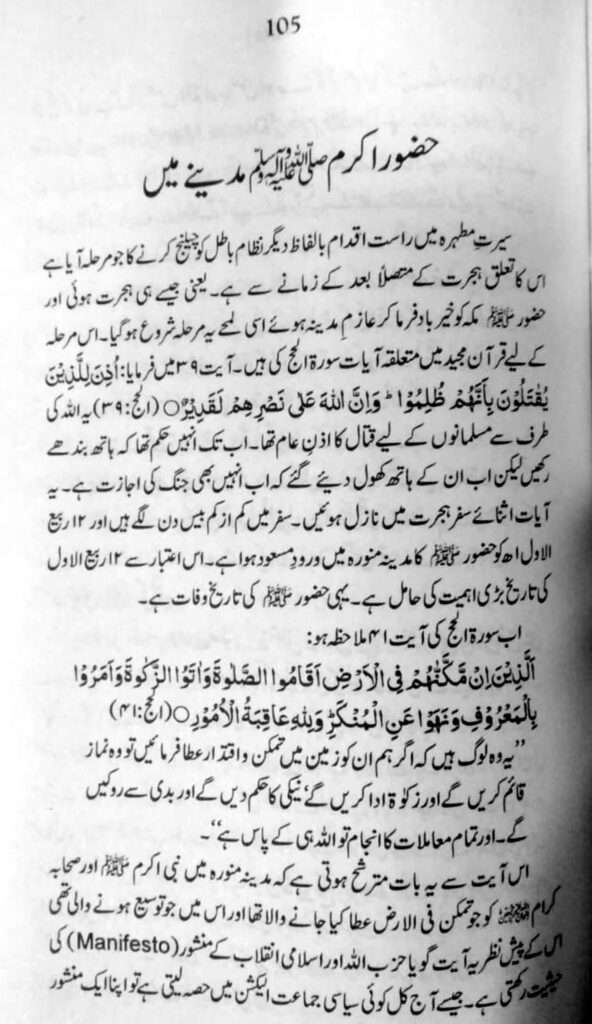 105
حضور اکرم صلی اللہ علیہ وسلم مدینے میں
سیرتِ مطہرہ میں راست اقدام بالفاظ دیگر نظام باطل کو چیلنج کرنے کا جو مرحلہ آیا ہے
اس کا تعلق ہجرت کے متصلاً بعد کے زمانے سے ہے۔ یعنی جیسے ہی ہجرت ہوئی اور
حضور ﷺ مکہ کو خیر باد فرما کر عازمِ مدینہ ہوئے اسی لمحے یہ مرحلہ شروع ہو گیا۔ اس مرحلہ
کے لیے قرآن مجید میں متعلقہ آیات سورۃ الحج کی ہیں۔ آیت ۳۹ میں فرمایا: اُذِنَ لِلَّذِیْنَ
یُقٰتَلُوْنَ بِاَنَّهُمْ ظُلِمُوْا ؕ وَاِنَّ اللّٰهَ عَلٰی نَصْرِهِمْ لَقَدِیْرُ ○ (الحج:۳۹) یہ اللہ کی
طرف سے مسلمانوں کے لیے قتال کا اذنِ عام تھا۔ اب تک انہیں حکم تھا کہ ہاتھ بندھے
رکھیں لیکن اب ان کے ہاتھ کھول دیئے گئے کہ اب انہیں بھی جنگ کی اجازت ہے۔ یہ
آیات اثنائے سفر ہجرت میں نازل ہوئیں۔ سفر میں کم از کم بیس دن لگے ہیں اور ۱۲ ربیع
الاول اھ کو حضور ﷺ کا مدینہ منورہ میں ورودِ مسعود ہوا ہے۔ اس اعتبار سے ۱۲ ربیع الاول
کی تاریخ بڑی اہمیت کی حامل ہے۔ یہی حضور ﷺ کی تاریخ وفات ہے۔
اب سورۃ الحج کی آیت ۴۱ ملاحظہ ہو:
اَلَّذِیْنَ اِنْ مَّكَّنّٰهُمْ فِی الْاَرْضِ اَقَامُوا الصَّلٰوةَ وَاٰتَوُا الزَّكٰوةَ وَاَمَرُوْا
بِالْمَعْرُوْفِ وَنَهَوْا عَنِ الْمُنْكَرِؕ وَلِلّٰهِ عَاقِبَةُ الْاُمُوْرِ ○ (الحج:۴۱)
’’یہ وہ لوگ ہیں کہ اگر ہم ان کو زمین میں تمکن و اقتدار عطا فرمائیں تو وہ نماز
قائم کریں گے اور زکوٰۃ ادا کریں گے، نیکی کا حکم دیں گے اور بدی سے روکیں
گے۔ اور تمام معاملات کا انجام تو اللہ ہی کے پاس ہے‘‘۔
اس آیت سے یہ بات مترشح ہوتی ہے کہ مدینہ منورہ میں نبی اکرم ﷺ اور صحابہ
کرام رضی اللہ عنہم کو جو تمکن فی الارض عطا کیا جانے والا تھا اور اس میں جو توسیع ہونے والی تھی
اس کے پیش نظر یہ آیت گویا حزب اللہ اور اسلامی انقلاب کے منشور (Manifesto) کی
حیثیت رکھتی ہے۔ جیسے آج کل کوئی سیاسی جماعت الیکشن میں حصہ لیتی ہے تو اپنا ایک منشور